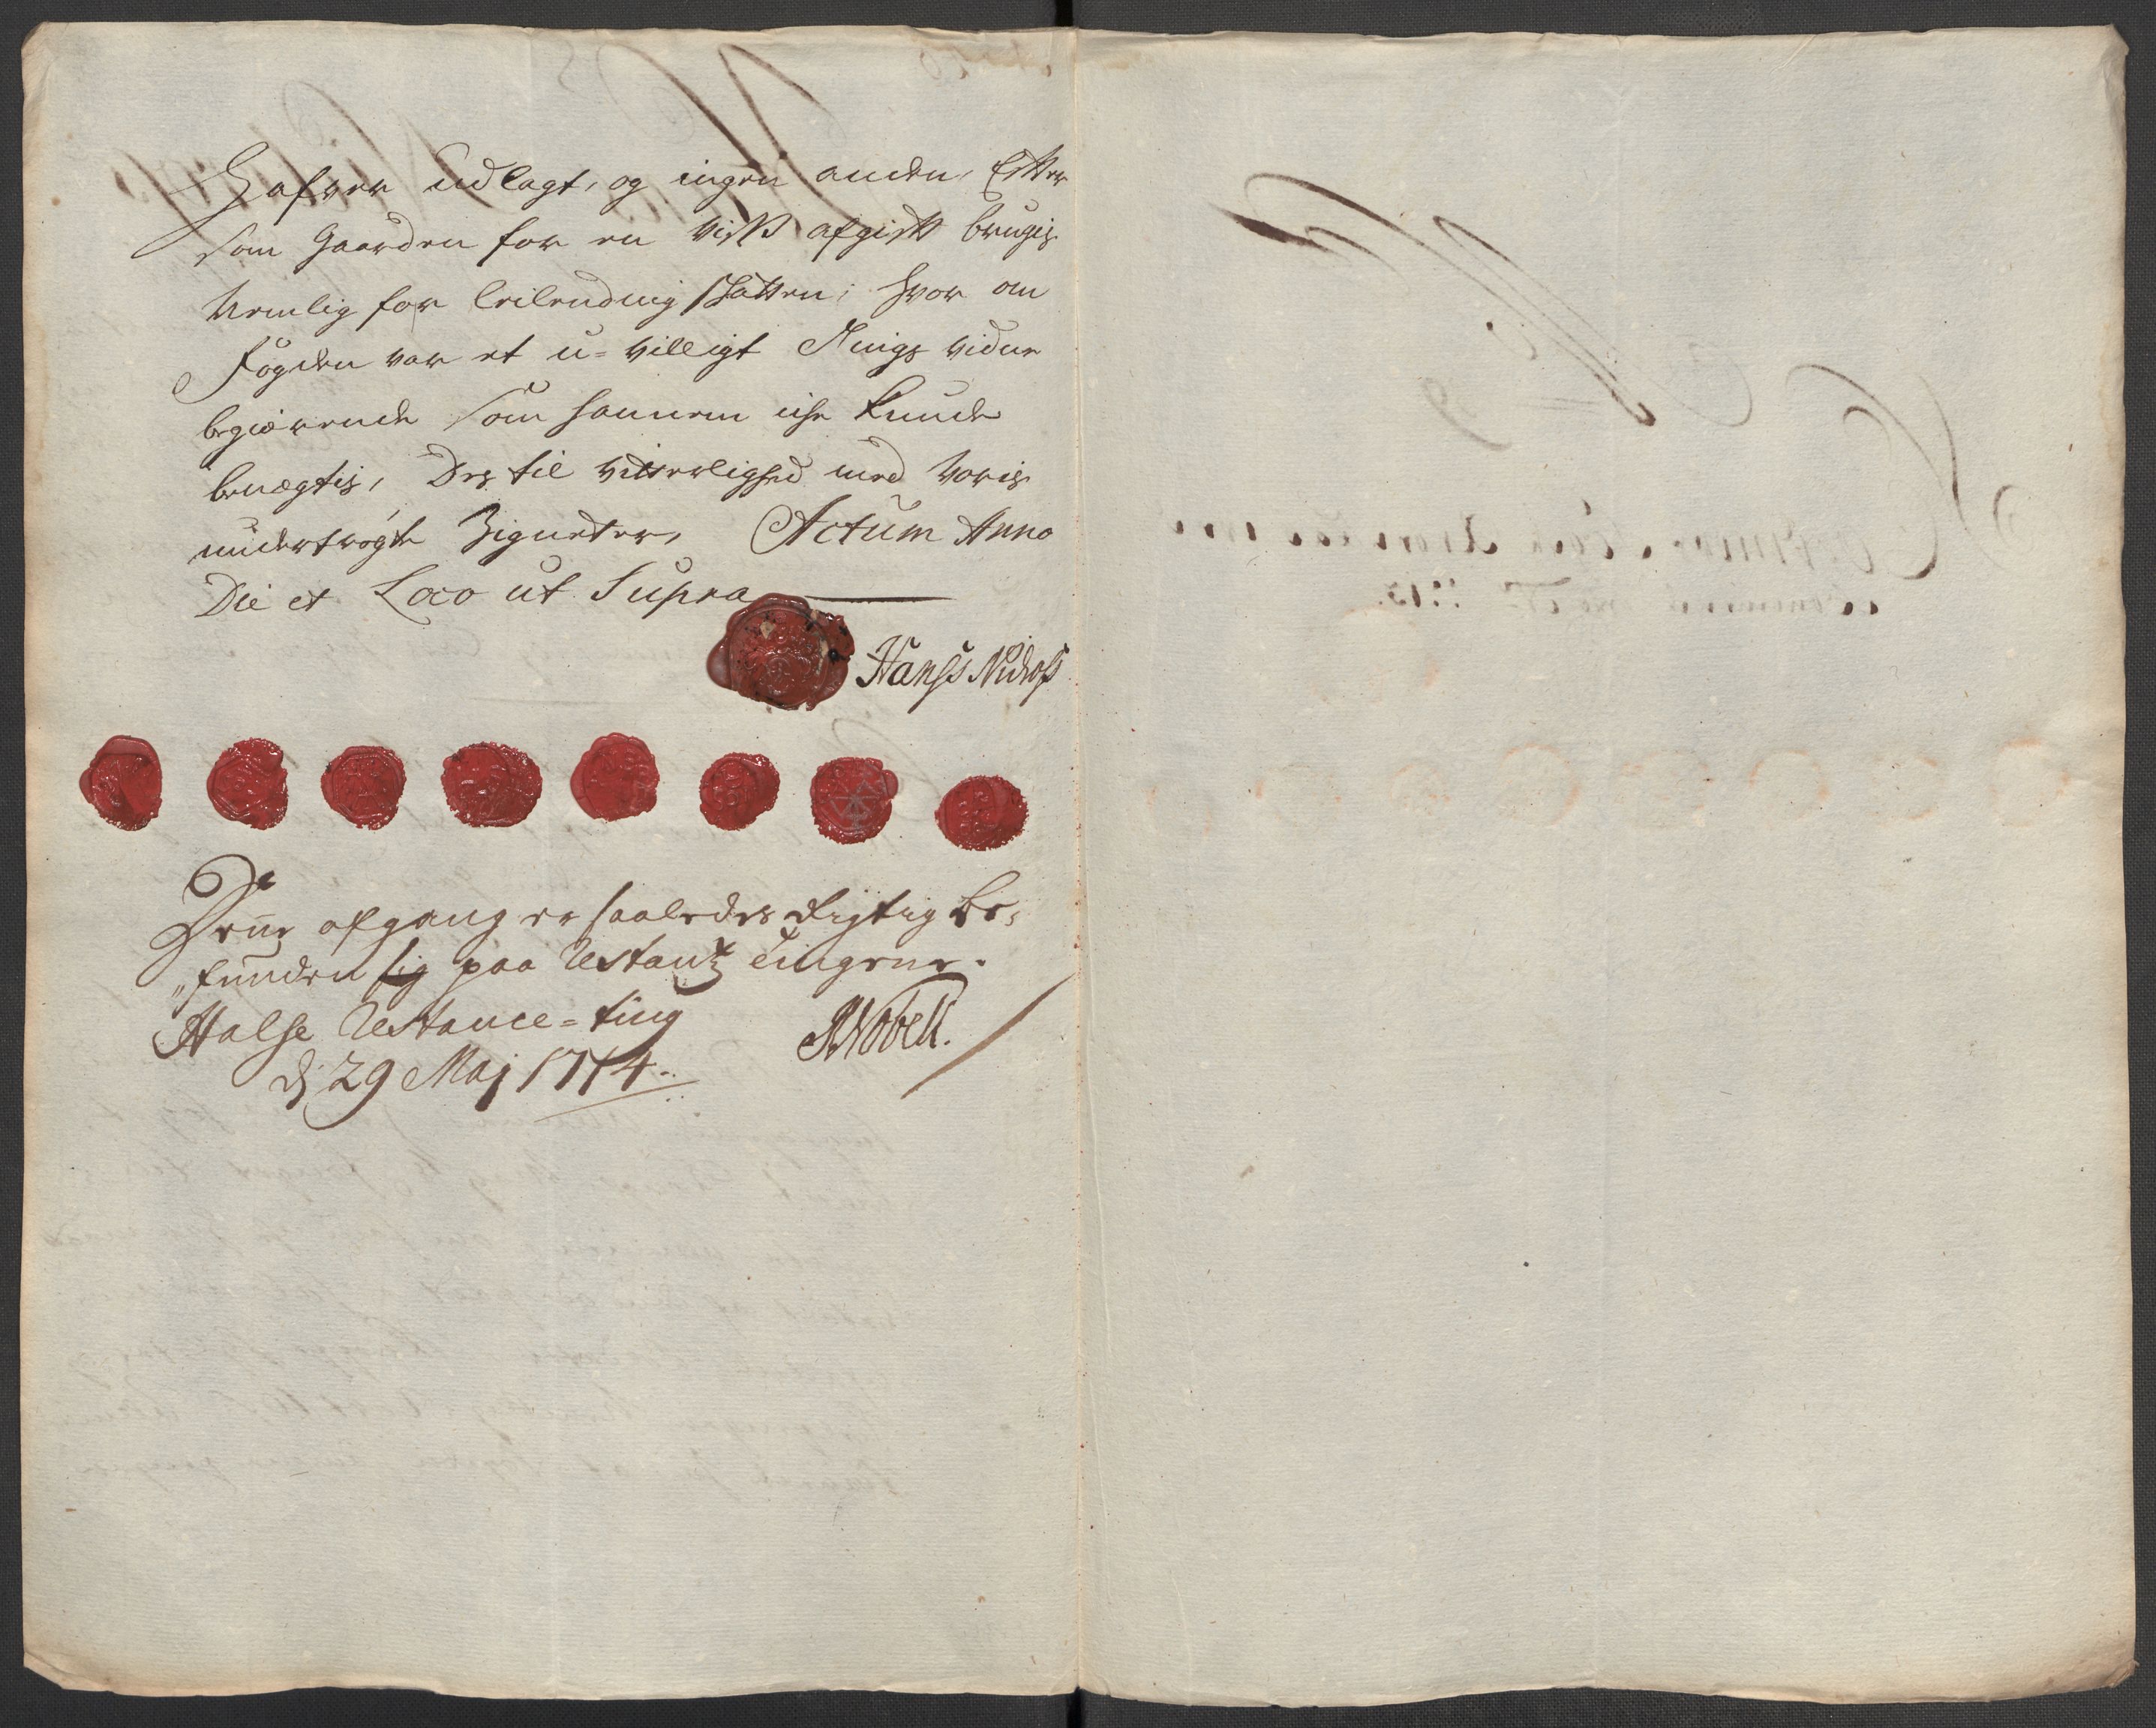 Hafver Udlagt, og ingen anden, Efter
som Gaarden for en viss afgift brugis
Nemlig for leilending skatten; hvor om
Fogden var et u=villigt Tings vidne
begiærende som hannem iche kunde
benægtis, Des til vitterlighed med voris
undertrøgte Zigneter, Actum Anno
Die et Loco ut Supra
Hanss Nidross
Denne afgang er saaledes Rigtig be,
„funden sig paa Restantz tingene.
Halse Restance=ting
d 29 Maj 1714.